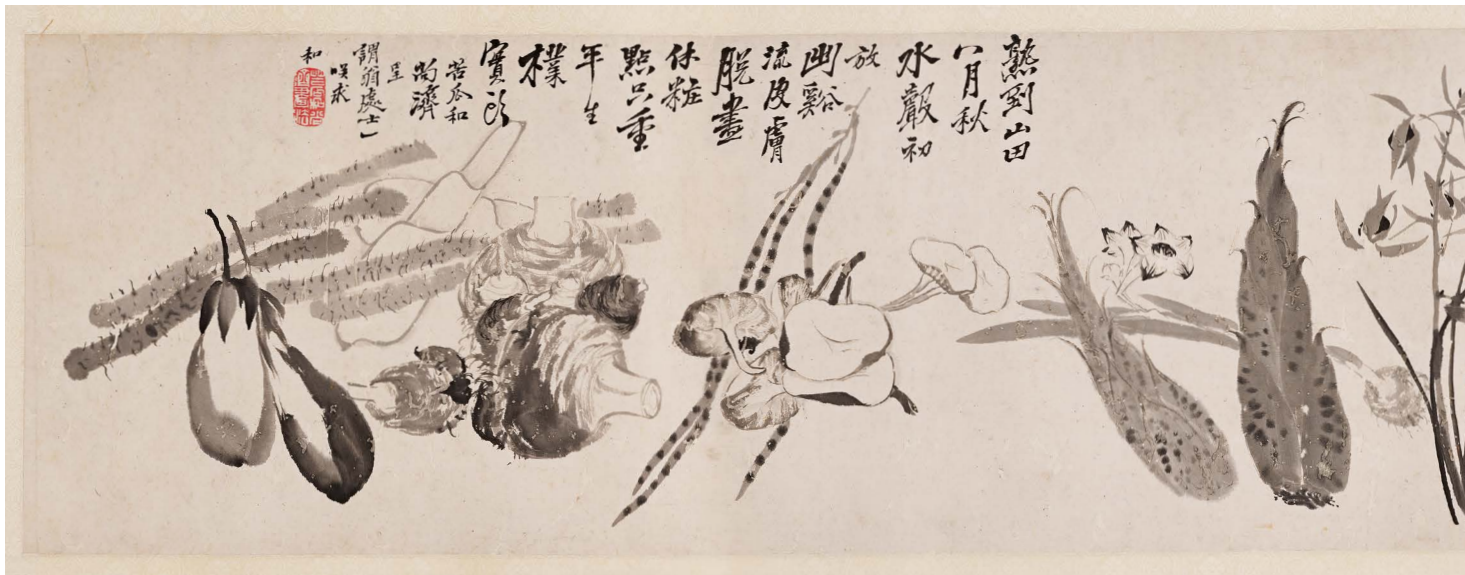 熟到山田
八月秋
水初
放
幽谿
流皮膚
脫盡
休粧
點只重
年生
樸
實頭
苦瓜和
尚濟
呈
翁處士
咲求
和